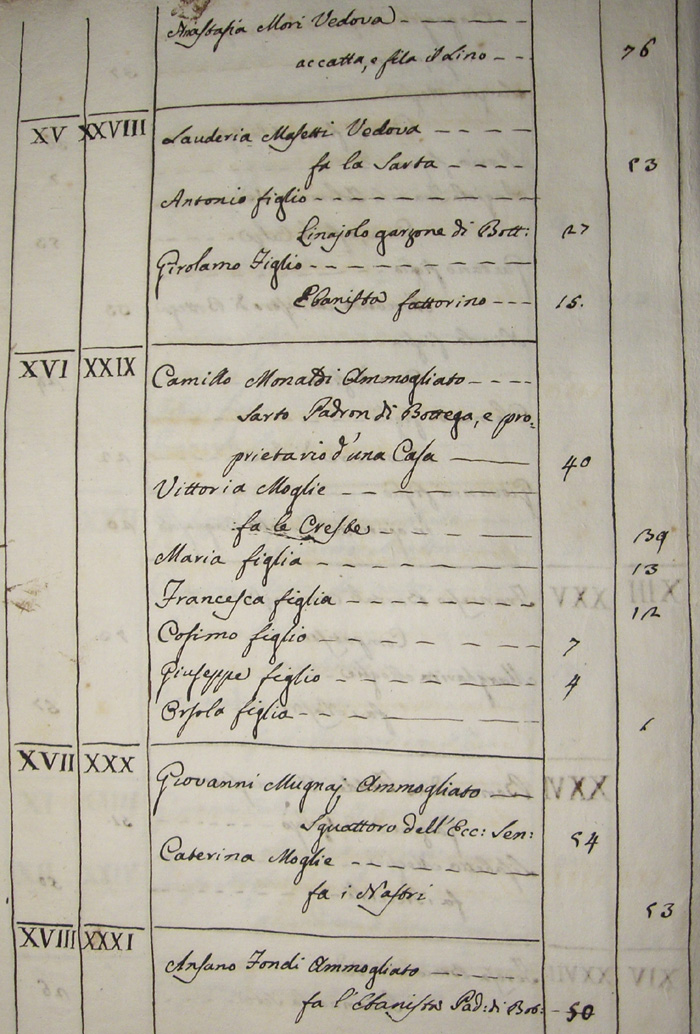 Anastasia Mori Vedova
accatta, e fila il Lino 76
XV XXVIII Lauderia Masetti Vedova
fa la Sarta 53
Antonio figlio
Linajolo garzone di Bott: 27
Girolamo Figlio
Ebanista fattorino 15.
XVI XXIX Camillo Monaldi Ammogliato
Sarto Padron di Bottega, e pro-
prietario d'una Casa 40
Vittoria Moglie
fa le Creste 39
Maria figlia 13
Francesca figlia 12
Cosimo figlio 7
Giuseppe figlio 4
Orsola figlia 1
XVII XXX Giovanni Mugnaj Ammogliato
Squattoro dell'Ecc: Sen: 54
Caterina Moglie
fa i Nastri 53
XVIII XXXI Ansano Fondi Ammogliato
fa l'Ebanista Pad: di Bot: 50